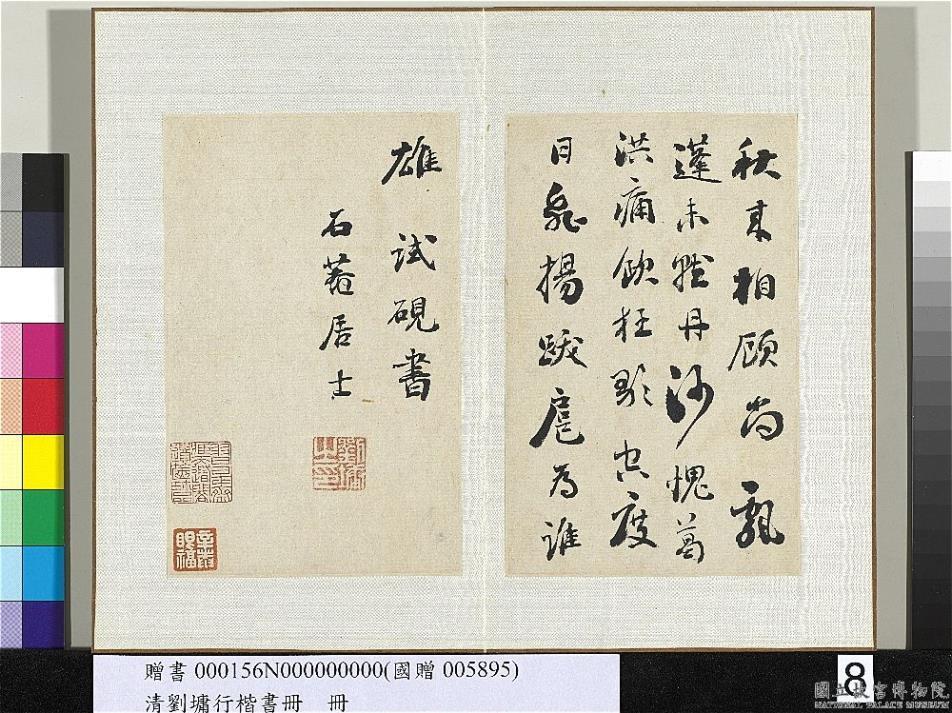 秋来相顧尚飄
蓬未就丹沙愧葛
洪痛飲狂歌空度
日飛揚跋扈為誰
雄 試硯書
石菴居士
贈書 000156N000000000(國贈 005895)
清劉墉行楷書冊 冊
8
國立故宮博物院
NATIONAL PALACE MUSEUM